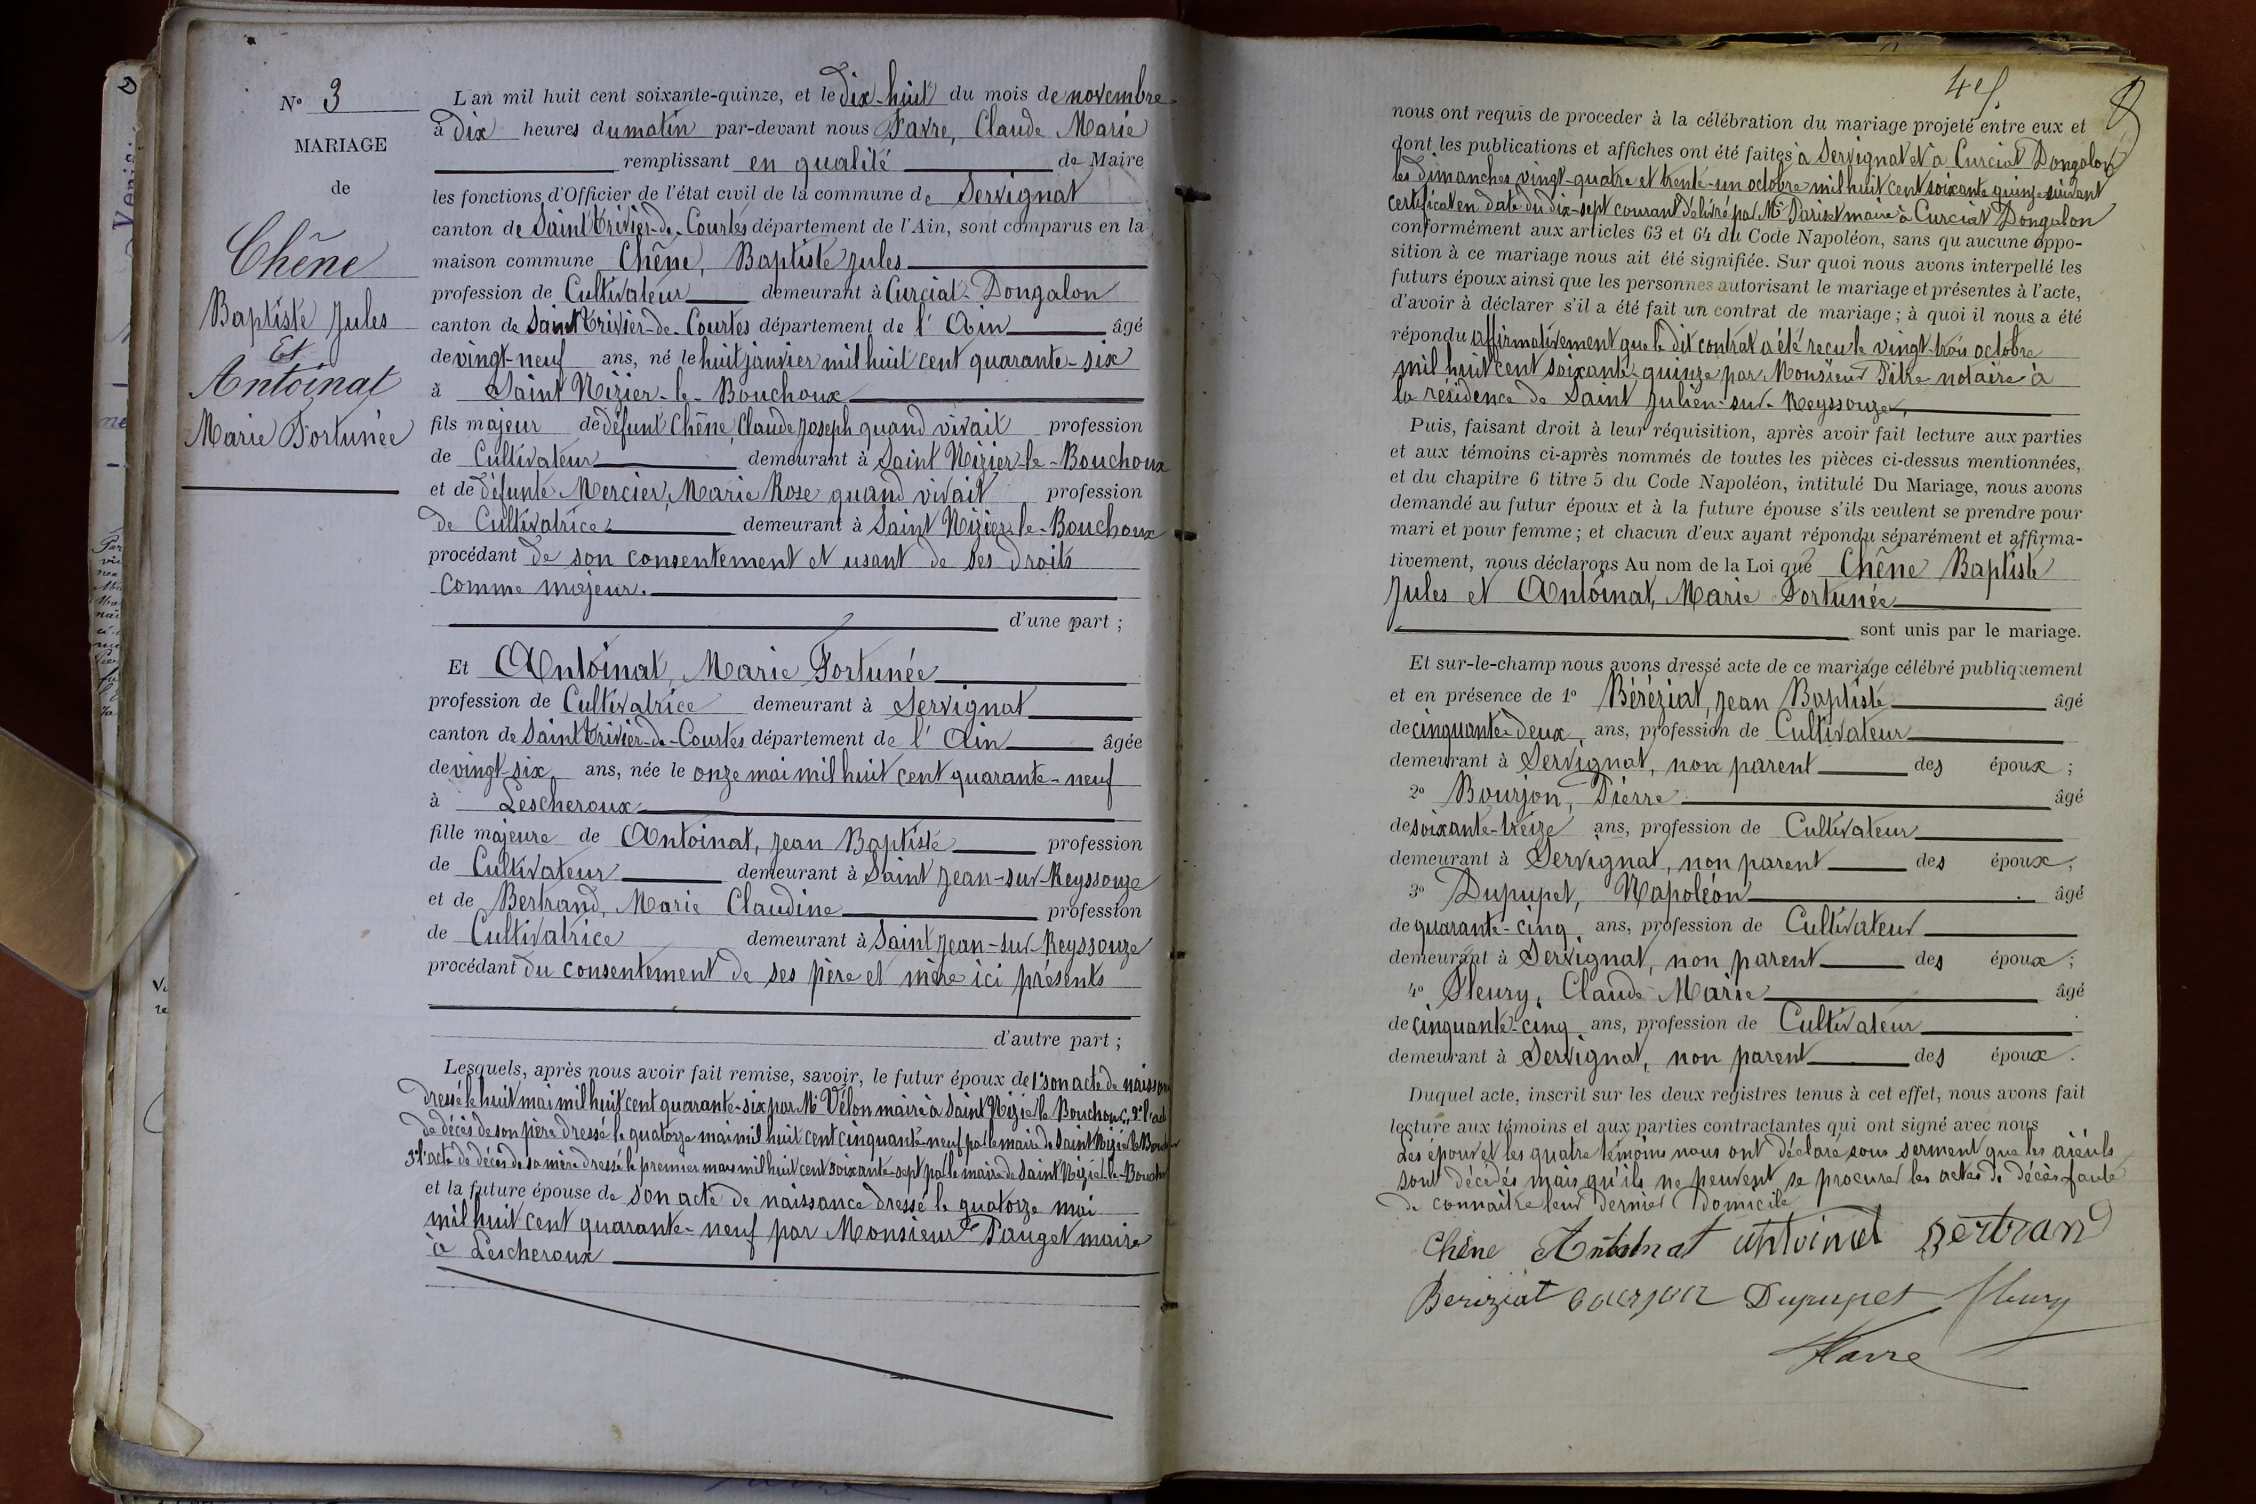 No 3
MARIAGE
de
Chêne
Baptiste Jules
Et
Antoinat
Marie Fortunée
L'an mil huit cent soixante-quinze, et le dix-huit du mois de novembre
à dix heures du matin par-devant nous Favre, Claude Marie
remplissant en qualité de Maire
les fonctions d'Officier de l'état civil de la commune de Servignat
canton de Saint Trivier-de-Courtes département de l'Ain, sont comparus en la
maison commune Chêne, Baptiste Jules
profession de Cultivateur demeurant à Curciat-Dongalon
canton de Saint Trivier-de-Courtes département de l'Ain âgé
de vingt-neuf ans, né le huit janvier mil huit cent quarante-six
à Saint Nizier-le-Bouchoux
fils majeur de défunt Chêne, Claude Joseph quand vivait profession
de Cultivateur demeurant à Saint Nizier-le-Bouchoux
et de défunte Mercier, Marie Rose quand vivait profession
de Cultivatrice demeurant à Saint Nizier-le-Bouchoux
procédant de son consentement et usant de ses droits
comme majeur.
d'une part ;
Et Antoinat, Marie Fortunée
profession de Cultivatrice demeurant à Servignat
canton de Saint Trivier-de-Courtes département de l'Ain âgée
de vingt-six ans, née le onze mai mil huit cent quarante-neuf
à Lescheroux
fille majeure de Antoinat, Jean Baptiste profession
de Cultivateur demeurant à Saint Jean-sur-Reyssouze
et de Bertrand, Marie Claudine profession
de Cultivatrice demeurant à Saint Jean-sur-Reyssouze
procédant du consentement de ses père et mère ici présents
d'autre part ;
Lesquels, après nous avoir fait remise, savoir, le futur époux de 1° son acte de
dressé le huit mai mil huit cent quarante-six par Mr Vélon maire à Saint Nizier le Bouchoux, 2° l'acte
de décès de son père dressé le quatorze mai mil huit cent cinquante-neuf par le maire de Saint Nizier le
3° l'acte de décès de sa mère dressé le premier mars mil huit cent soixante-sept par le maire de Saint Nizier-le-Bouchoux
et la future épouse de son acte de naissance dressé le quatorze mai
mil huit cent quarante-neuf par Monsieur Pauget maire
à Lescheroux
8
nous ont requis de proceder à la célébration du mariage projeté entre eux et
dont les publications et affiches ont été faites à Servignat et à Curciat Dongalon
les dimanches vingt-quatre et trente-un octobre mil huit cent soixante quinze suivant
certificat en date du dix-sept courant délivré par Mr Pariset maire à Curciat Dongalon
conformément aux articles 63 et 64 du Code Napoléon, sans qu'aucune oppo-
sition à ce mariage nous ait été signifiée. Sur quoi nous avons interpellé les
futurs époux ainsi que les personnes autorisant le mariage et présentes à l'acte,
d'avoir à déclarer s'il a été fait un contrat de mariage ; à quoi il nous a été
répondu affirmativement que le dit contrat a été recu le vingt-trois octobre
mil huit cent soixante-quinze par Monsieur Pitre notaire à
la résidence de Saint Julien-sur-Reyssouze,
Puis, faisant droit à leur réquisition, après avoir fait lecture aux parties
et aux témoins ci-après nommés de toutes les pièces ci-dessus mentionnées,
et du chapitre 6 titre 5 du Code Napoléon, intitulé Du Mariage, nous avons
demandé au futur époux et à la future épouse s'ils veulent se prendre pour
mari et pour femme ; et chacun d'eux ayant répondu séparément et affirma-
tivement, nous déclarons Au nom de la Loi que Chêne Baptiste
Jules et Antoinat, Marie Fortunée
sont unis par le mariage.
Et sur-le-champ nous avons dressé acte de ce mariage célébré publiquement
et en présence de 1° Béréziat, Jean Baptiste âgé
de cinquante-deux ans, profession de Cultivateur
demeurant à Servignat, non parent des époux ;
2° Bourjon, Pierre âgé
de soixante-treize ans, profession de Cultivateur
demeurant à Servignat, non parent des époux ;
3° Dupupet, Napoléon âgé
de quarante-cinq ans, profession de Cultivateur
demeurant à Servignat, non parent des époux ;
4° Fleury, Claude Marie âgé
de cinquante-cinq ans, profession de Cultivateur
demeurant à Servignat, non parent des époux.
Duquel acte, inscrit sur les deux registres tenus à cet effet, nous avons fait
lecture aux témoins et aux parties contractantes qui ont signé avec nous
Les époux et les quatre témoins nous ont déclaré sous serment que les aïeuls
sont décédés mais qu'ils ne peuvent se procurer les actes de décès faute
de connaitre leur dernier domicile
Chêne Antoinat Antoinat Bertrand
Bereziat Bourjon Dupupet fleury
Favre